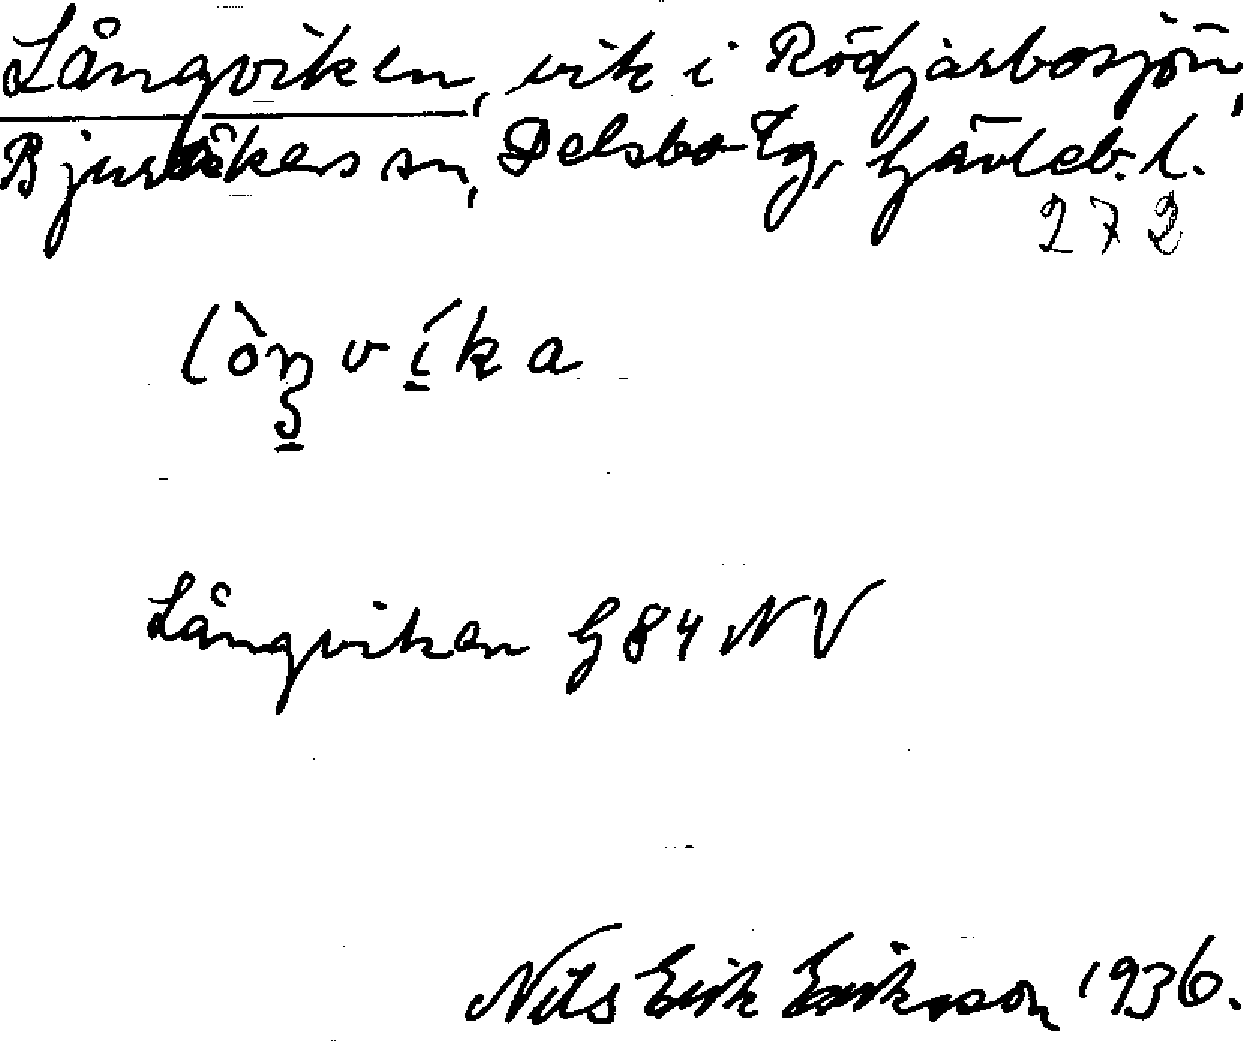 Långviken, vik i Rödjarbosjön,
Bjuråkers sn, Delsbo tg, Gävleb. l.
272
Långviken G84 NV
Nils Erik Eriksson 1936.